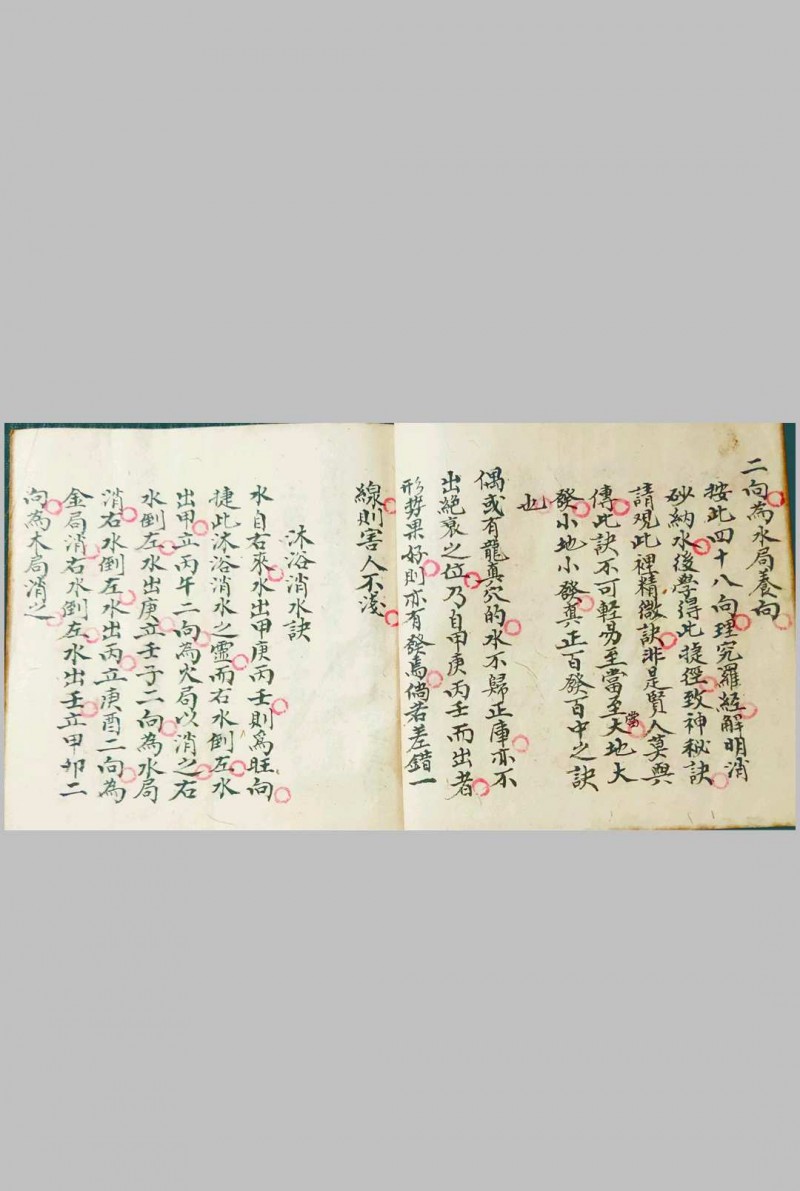 二向為水局養向
按此四十八向理究羅經解明消
砂納水後學得此捷徑致神秘訣
請观此裡精微訣非是賢人莫與
傳此訣不可輕易至當至當大地大
發小地小發真正百發百中之訣
也
偶或有龍真穴的水不歸正庫亦不
出絕衰之位乃自甲庚丙壬而出者
形势果好則亦有發焉倘若差錯一
線則害人不淺
沐浴消水訣
水自右來水出甲庚丙壬則爲旺向
捷此沐浴消水之靈而右水倒左水
出甲立丙午二向為火局以消之右
水倒左水出庚立壬子二向為水局
消右水倒左水出丙立庚酉二向為
金局消右水倒左水出壬立甲卯二
向為木局消之